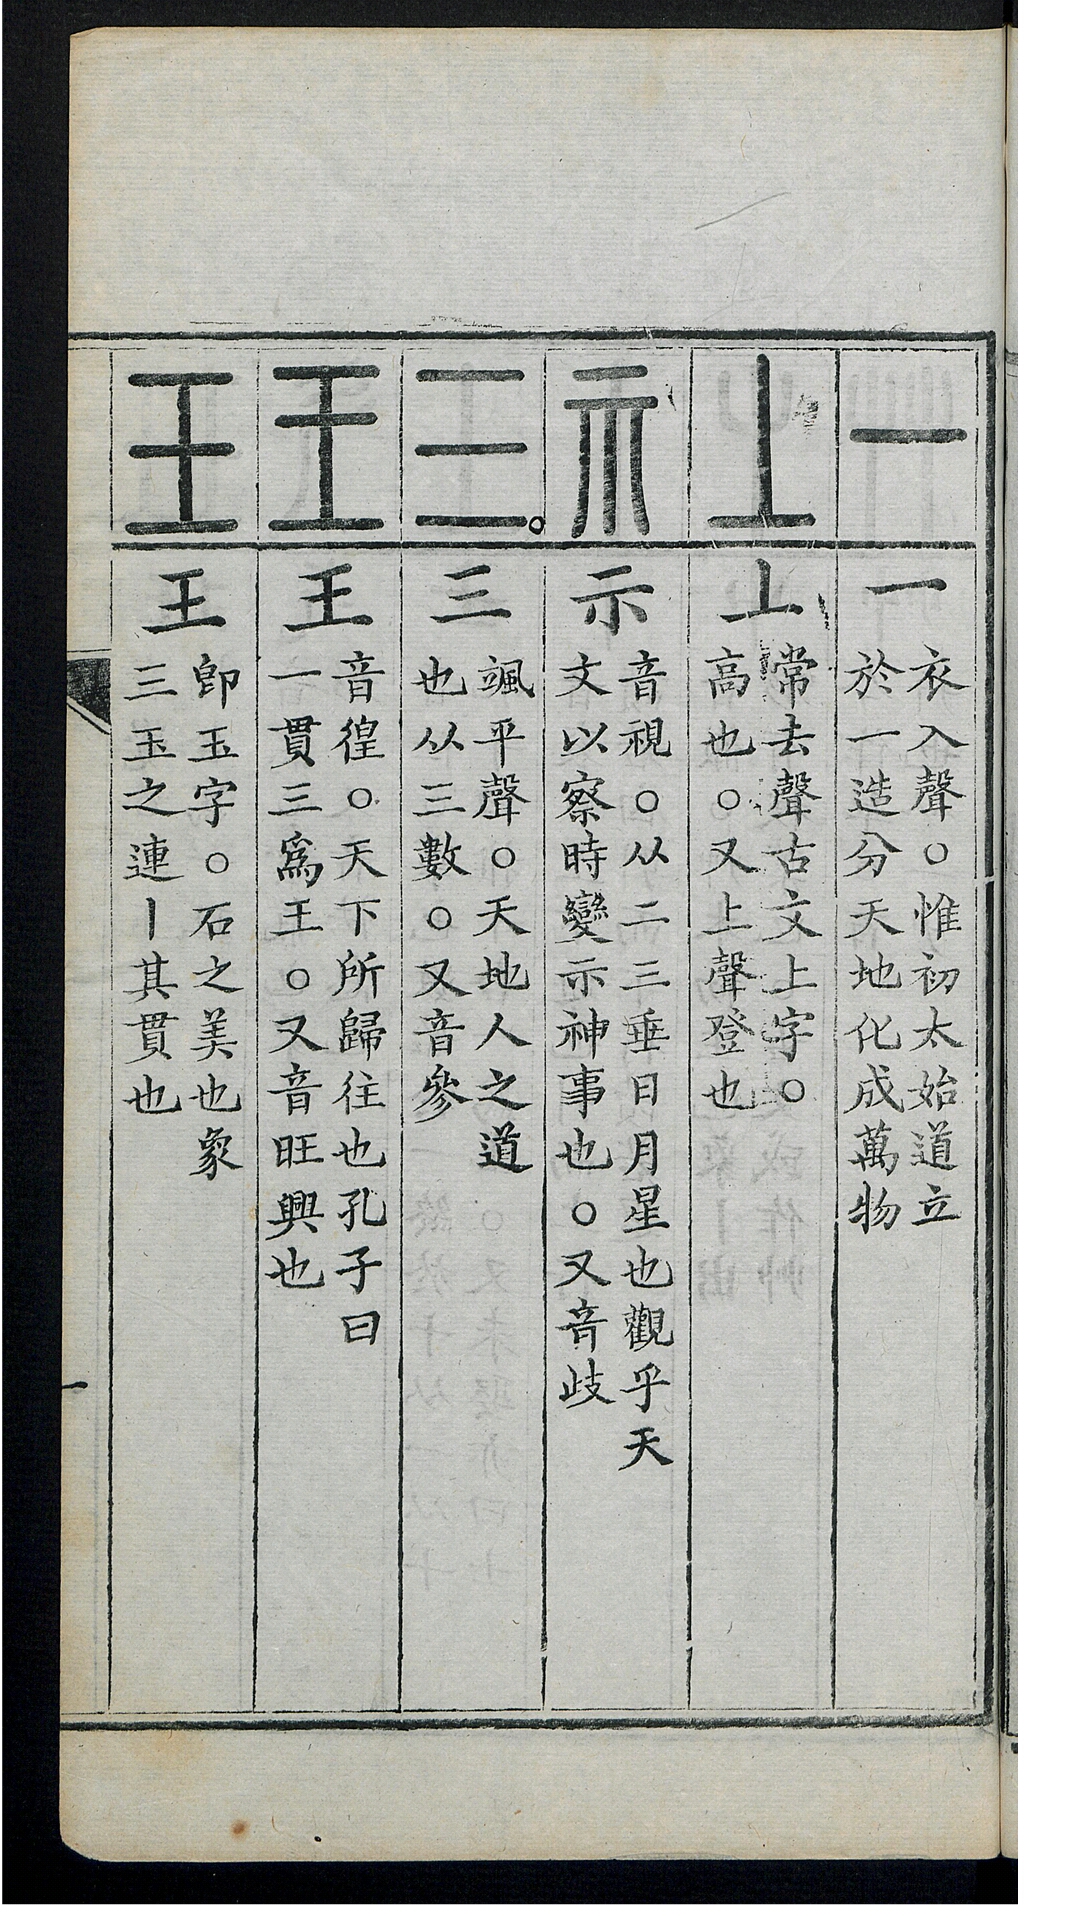 一
一
衣入聲○惟初太始道立
於一造分天地化成萬物
丄
丄
常去聲古文上字○
高也○又上聲登也
示
示
音視○从二三垂日月星也觀乎天
文以察時變示神事也○又音歧
三
三
颯平聲○天地人之道
也从三數○又音參
王
王
音徨○天下所歸往也孔子曰
一貫三爲王○又音旺興也
王
王
即玉字○石之美也象
三玉之連丨其貫也
一